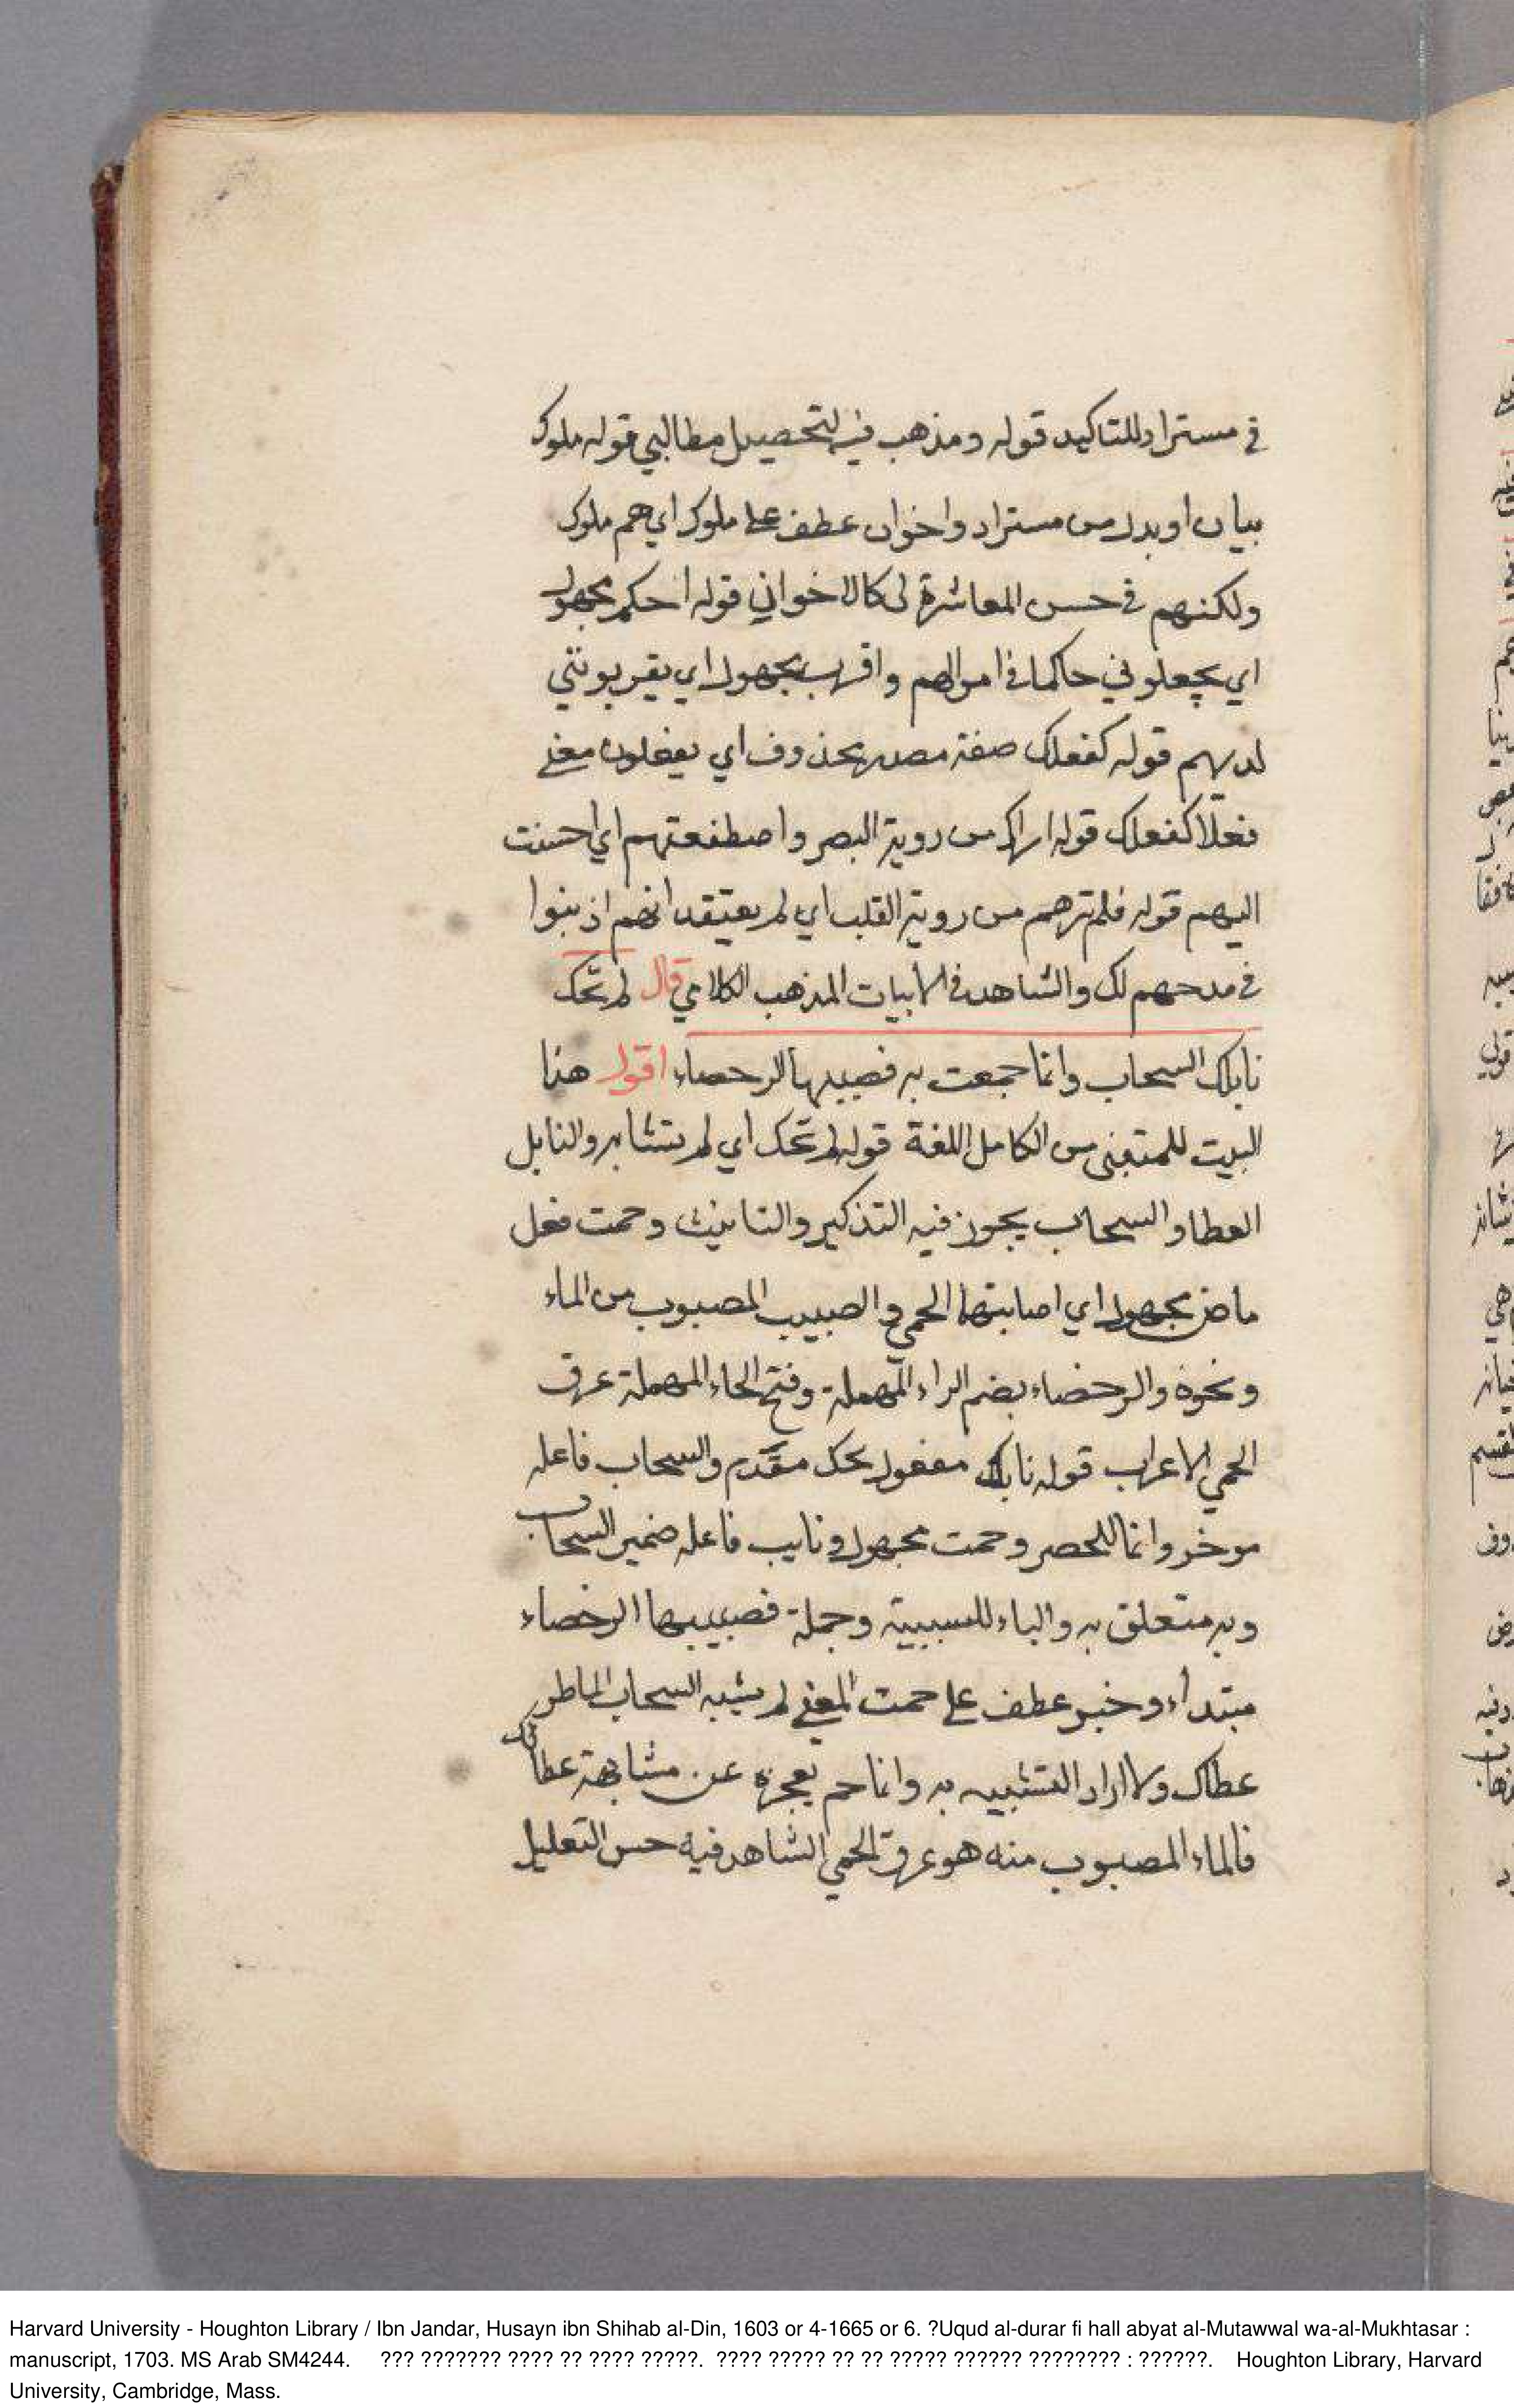 في مستراد للتاكيد قوله ومذهب فيه لتحصيل مطالبي قوله ملوك
بيان او بدل من مستراد واخوان عطف على ملوك اي هم ملوك
ولكنهم في حسن المعاشرة لي كالاخواني قوله احكم مجهول
اي يجعلوني حاكما في اموالهم واقرب مجهول اي يقربونني
لديهم قوله كفعلك صفة مصدر محذوف اي يفعلون معي
فعلا كفعلك قوله اراك من روية البصر واصطفعتهم اي احسنت
اليهم قوله فلم ترهم من روية القلب اي لم يعتقد انهم اذنبوا
في مدحهم لك والشاهد في الابيات المذهب الكلامي قال لم تحك
نايلك السحاب وانما حمعت به فصبيبها الرحصاء اقول هذا
البيت للمتبنى من الكامل اللغة قوله لم تحك اي لم يتشابه والنايل
العطا والسحاب يجوز فيه التذكير والتانيث وحمت فعل
ماض مجهول اي اصابتها الحمي والصبيب المصبوب من الماء
ونحوه والرحضاء بضم الراء المهملة وفتح الحاء المهملة عرق
الحمي الاعراب قوله نايلك مفعول تحك مقدم والسحاب فاعله
موخر وانما للحصر وحمت مجهول ونايب فاعله ضمير السحاب
وبه متعلق به والباء للسببية وجملة فصبيبها الرخصاء
مبتداء وخبر عطف على حمت المعني لم يشبه السحاب الماطر
عطاك ولا اراد التشبيه به وانما حم لعجزه عن مشابهة عطائك
فالماء المصبوب منه هو عرق الحمي الشاهد فيه حسن التعليل
Harvard University - Houghton Library / Ibn Jandar, Husayn ibn Shihab al-Din, 1603 or 4-1665 or 6. ?Uqud al-durar fi hall abyat al-Mutawwal wa-al-Mukhtasar :
manuscript, 1703. MS Arab SM4244. ??? ??????? ???? ?? ???? ?????. ???? ????? ?? ?? ????? ?????? ???????? : ??????. Houghton Library, Harvard
University, Cambridge, Mass.